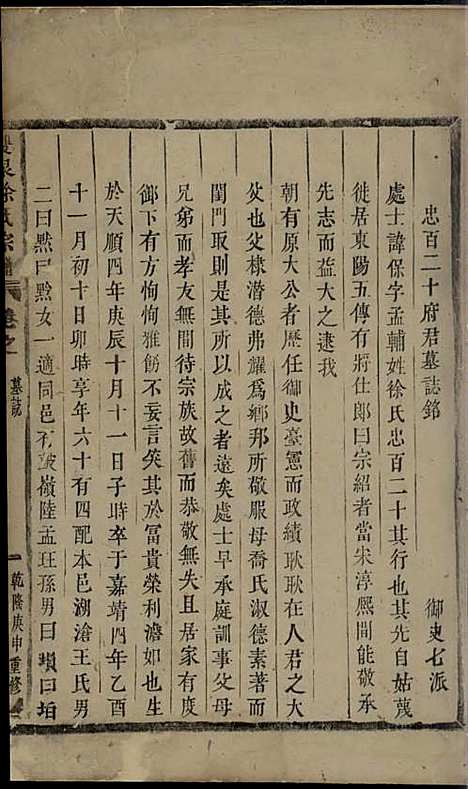 忠百二十府君墓誌銘　御史七派
處士諱保字孟輔姓徐氏忠百二十其行也其先自姑蔑
徙居東陽五傳有將仕郎曰宗紹者當宋淳熙間能敬承
先志而益大之逮我
朝有原大公者歷任御史臺憲而政績耿耿在人君之大
父也父棣潜德弗耀爲鄉邦所敬服母喬氏淑德素著而
閨門取則是其所以成之者遠矣處士早承庭訓事父母
兄弟而孝友無間待宗族故舊而恭敬無失且居家有度
御下有方恂恂雅飭不妄言笑其於富貴榮利澹如也生
於天順四年庚辰十月十一日子時卒于嘉靖四年乙酉
十一月初十日卯時享年六十有四配本邑湖滄王氏男
二曰黙曰㸃女一適同邑嶺陸孟班孫男曰塤曰垍
徐氏宗譜　卷之　墓誌　一　乾隆庚申重修